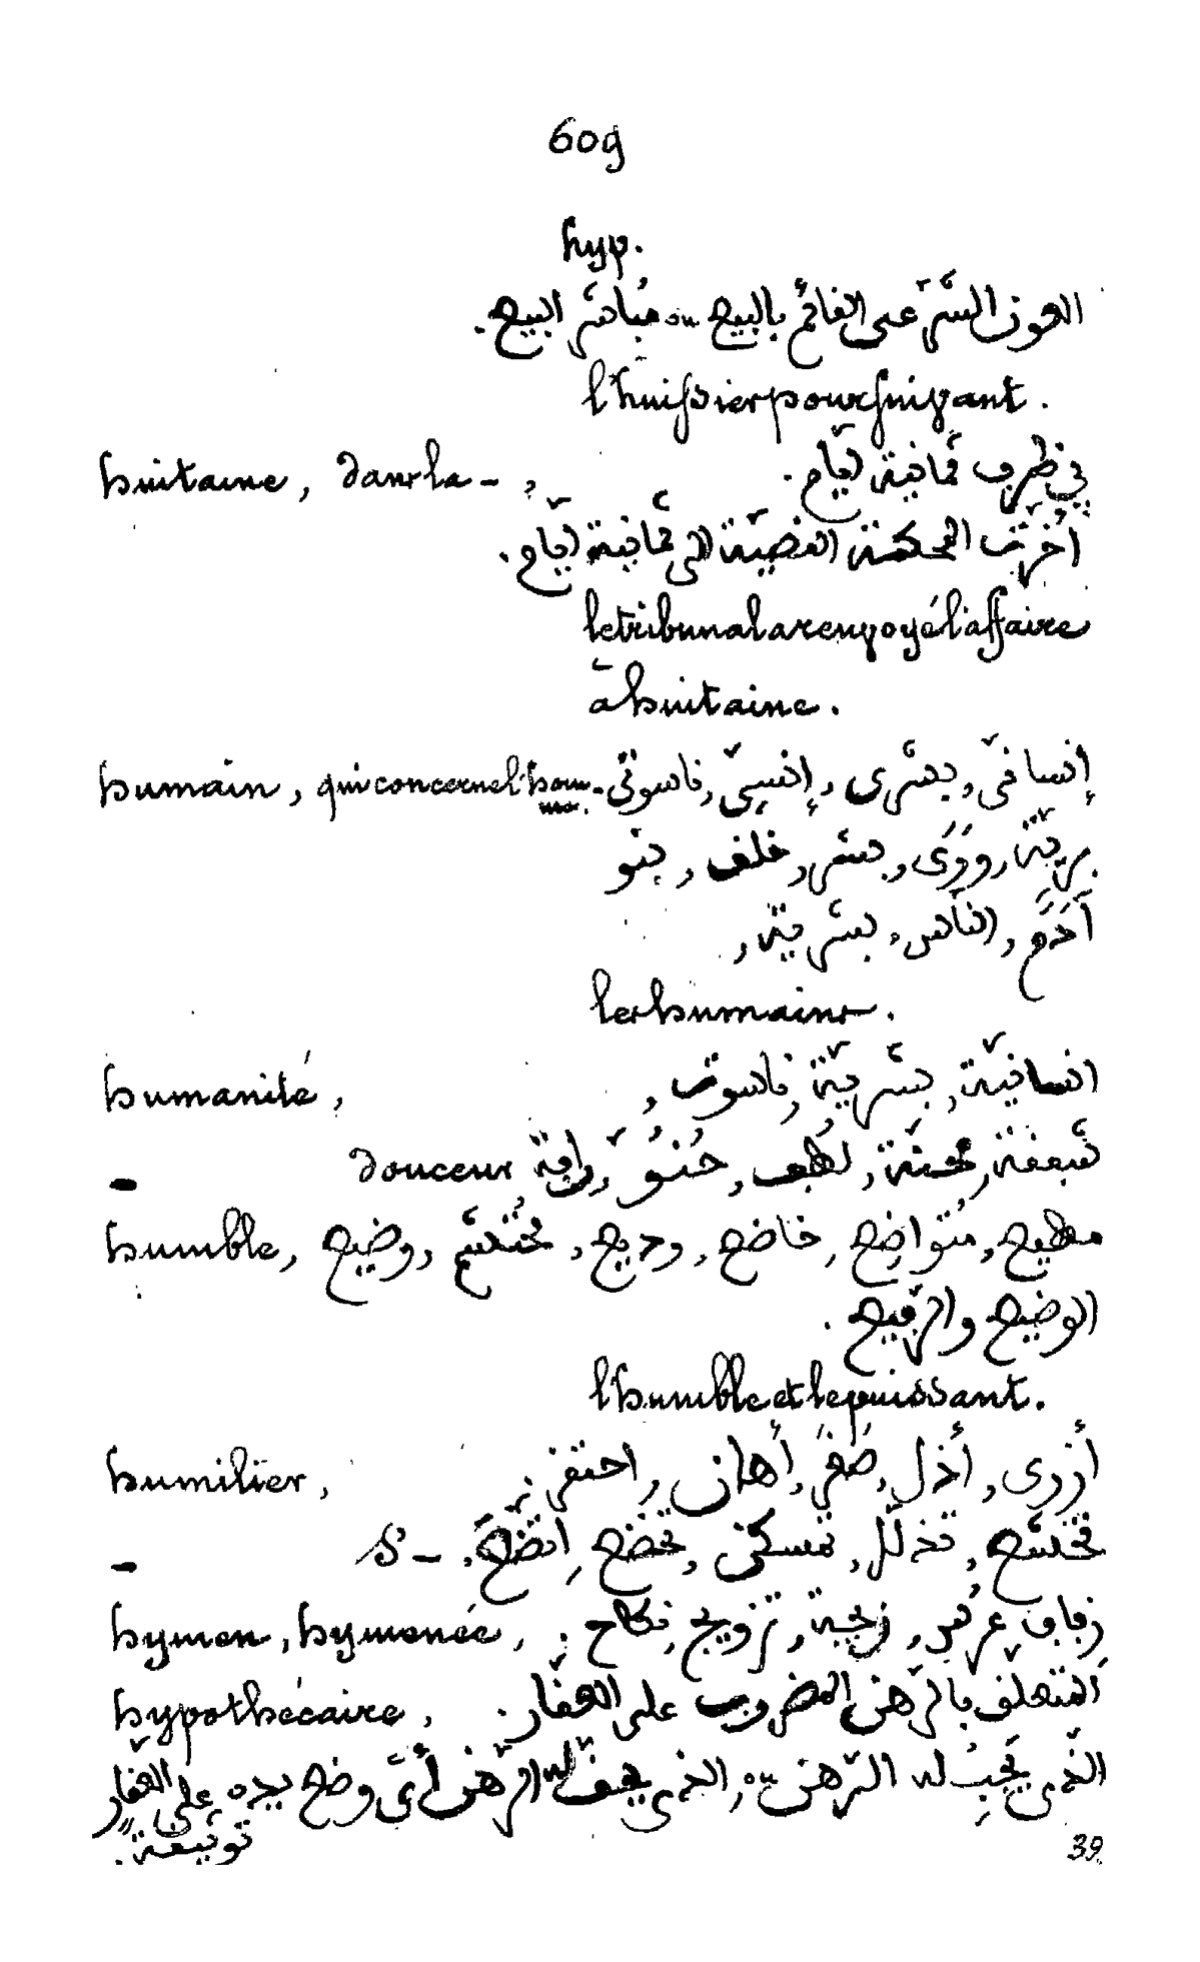 609
hyp.
العون الشّرعى الفائم بالبيع ou مُباشر البيع.
l'huissier poursuivant.
huitaine, dans la -, في ظرف ثمانية ايّام.
اخّرت المحكمة الفضيّة الى ثمانية ايّام.
le tribunal a renvoyé l'affaire
à huitaine.
humain, qui concerne l'hom- إنسانيّ, بشرى, إنسيّ, ناسوتي
me.
بريّة, وَرَى, بشر, خلف, بنو
آدَم, الناس, بشريّة,
les humains.
humanité, انسانيّة, بشريّة, ناسوت,
- douceur شبفة, محنّة, لُطف, حُنُوّ, رافة
humble, مطيع, مُتواضِع, خاضع, وديع, مُختشع, وضيع
الوضيع والرّفيع.
l'humble et le puissant.
humilier, أزرى, أذل, أهان, احتفر.
- S' - تخشّع, تذلّل, تمسكن, تخضع, اتّضع.
hymen, hyménée, زفاف, عرس, زيجة, تزويج, نكاح.
hypothécaire, المتعلّف بالرّهن المضروب على العفّار.
الذى يَجِبُ له الرّهن ou الذى يحفّ له الرّهن أىّ وضع يده على العفّار
توثيفة.
39.